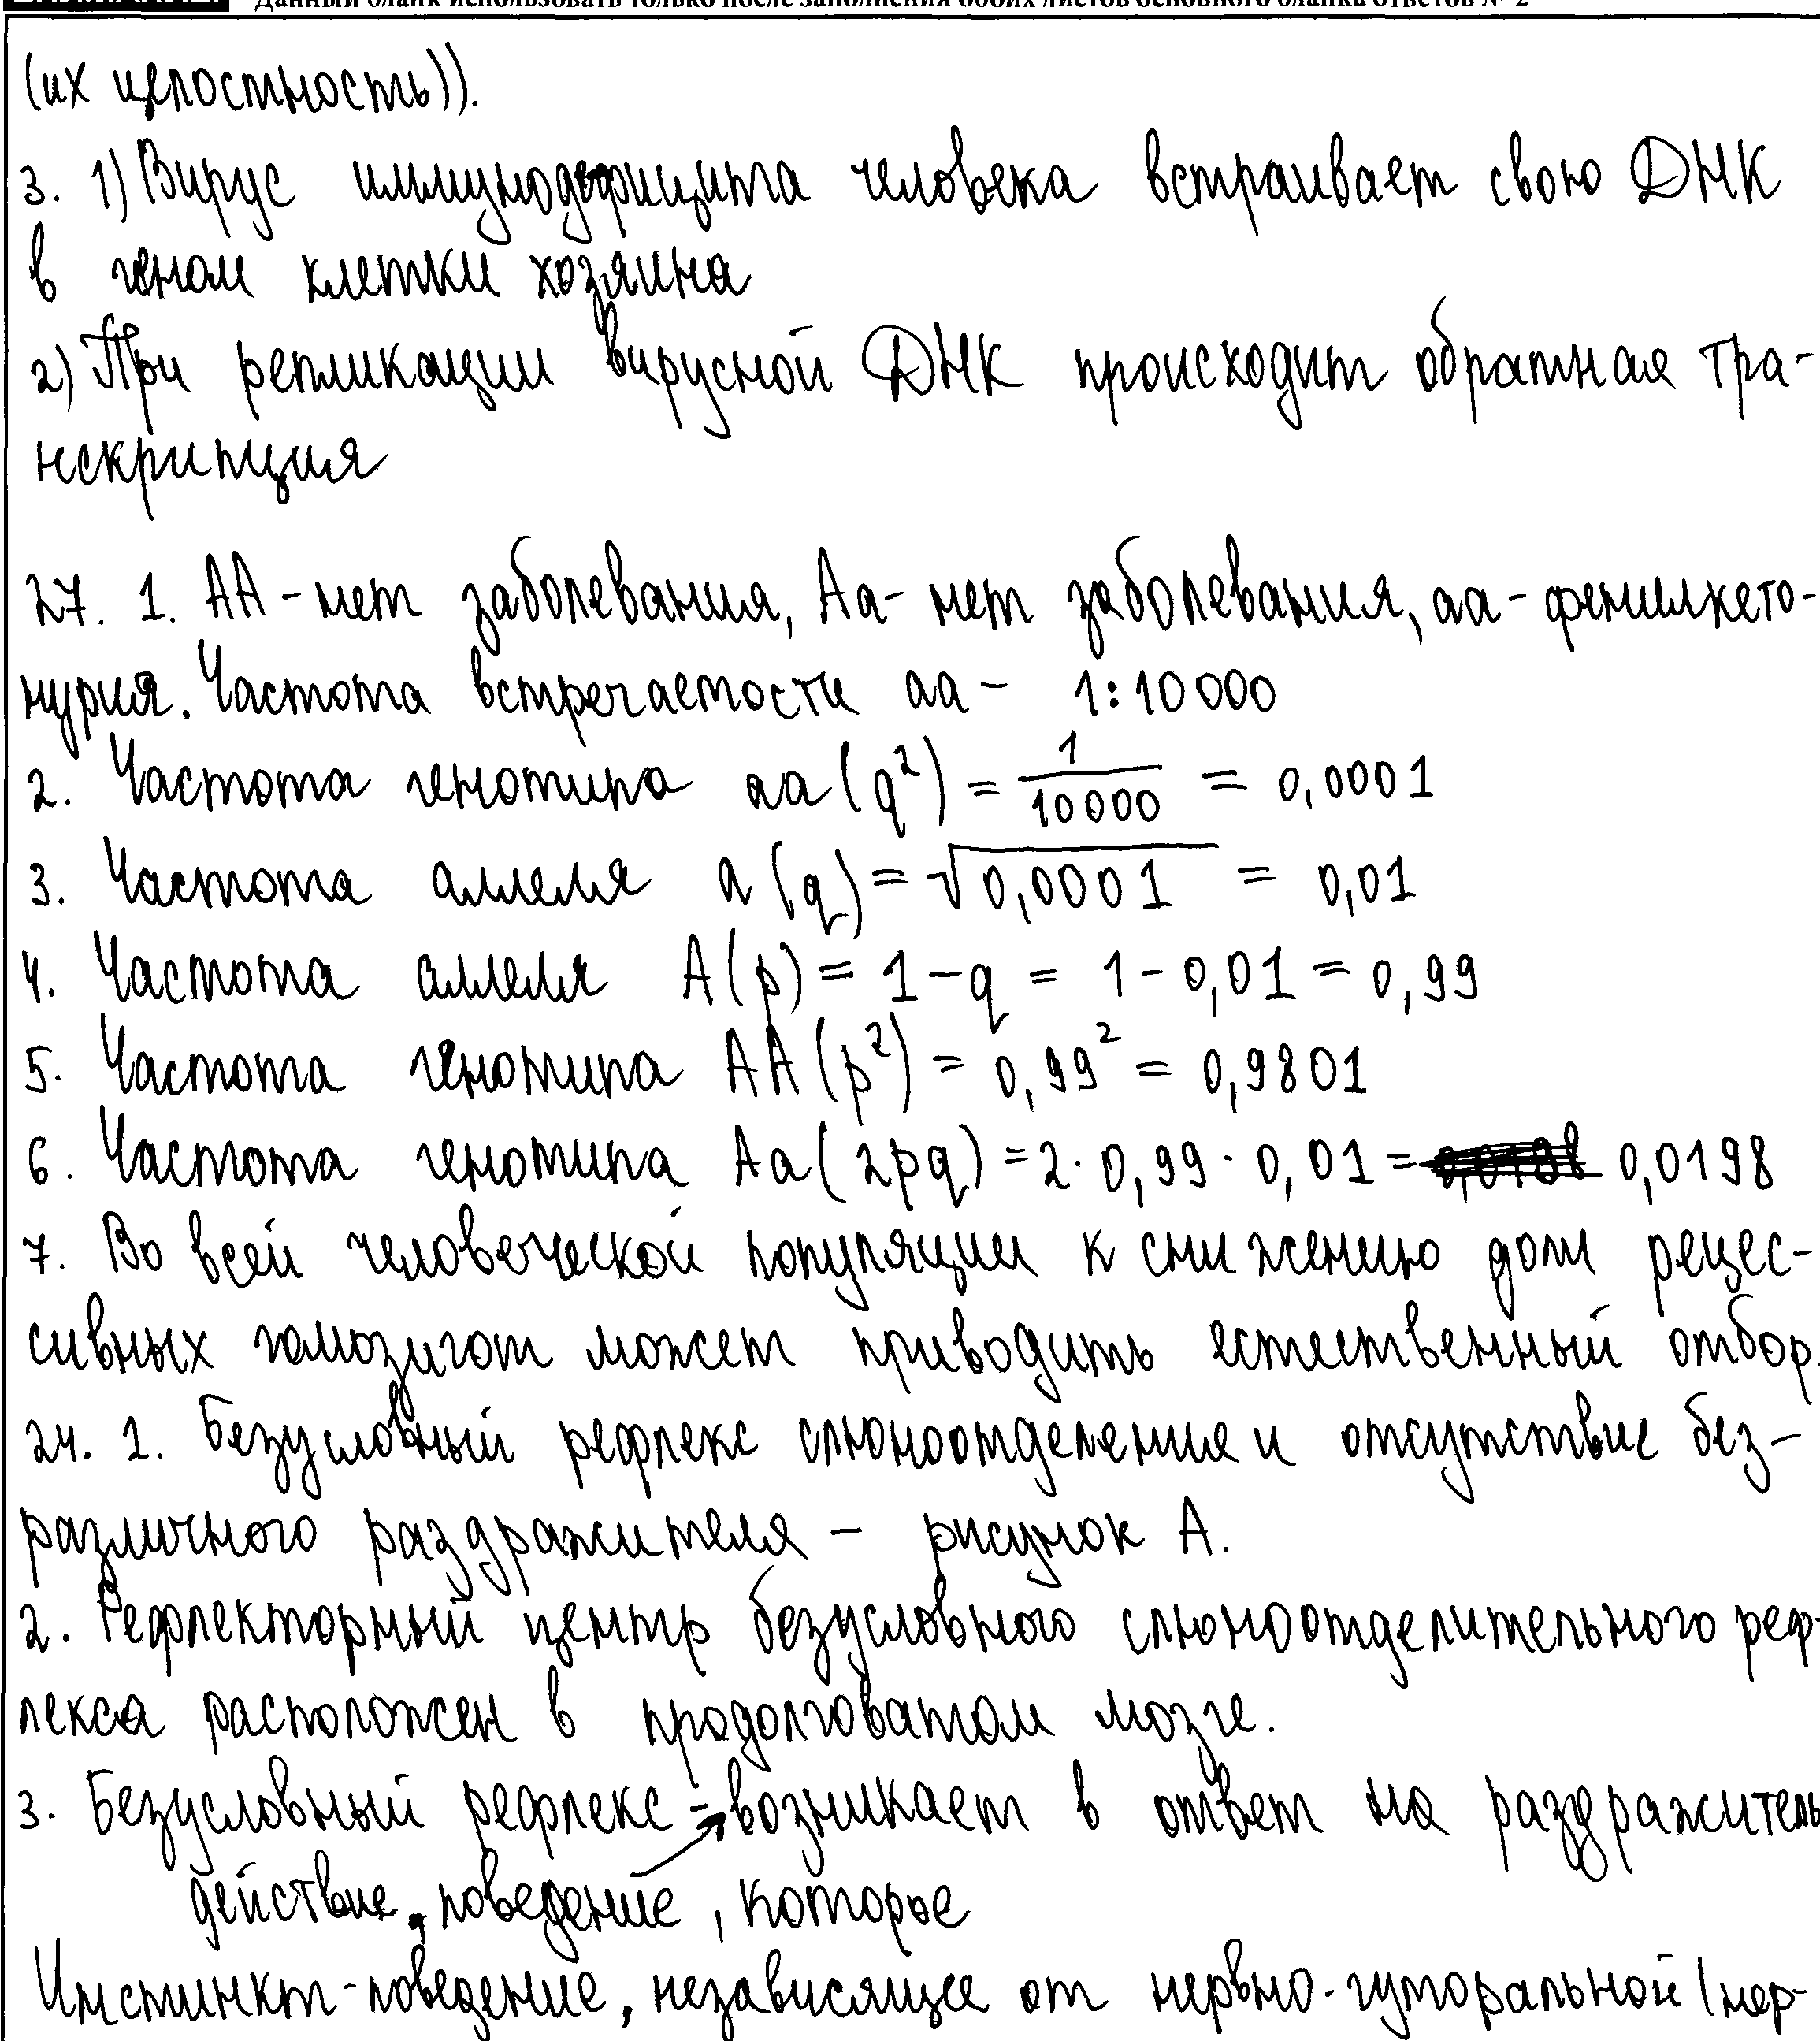 Данный бланк использовать только после заполнения обоих листов основного бланка ответов № 2
(их целостность)).
3. 1) Вирус иммунодефицита человека встраивает свою ДНК
в геном клетки хозяина
2) При репликации вирусной ДНК происходит обратная тра-
нскрипция
27. 1. АА - нет заболевания, Аа - нет заболевания, аа - фенилкето-
нурия. Частота встречаемости аа - 1:10000
2. Частота генотипа аа (q²) = 1/10000 = 0,0001
3. Частота аллеля а (q) = √0,0001 = 0,01
4. Частота аллеля А (p) = 1 - q = 1 - 0,01 = 0,99
5. Частота генотипа АА (p²) = 0,99² = 0,9801
6. Частота генотипа Аа (2pq) = 2 · 0,99 · 0,01 = 0,0198
7. Во всей человеческой популяции к снижению доли рецес-
сивных гомозигот может приводить естественный отбор.
24. 1. Безусловный рефлекс слюноотделения и отсутствие без-
различного раздражителя - рисунок А.
2. Рефлекторный центр безусловного слюноотделительного реф-
лекса расположен в продолговатом мозге.
3. Безусловный рефлекс - возникает в ответ на раздражитель
действие, поведение, которое
Инстинкт - поведение, независящее от нервно-гуморальной (нер-